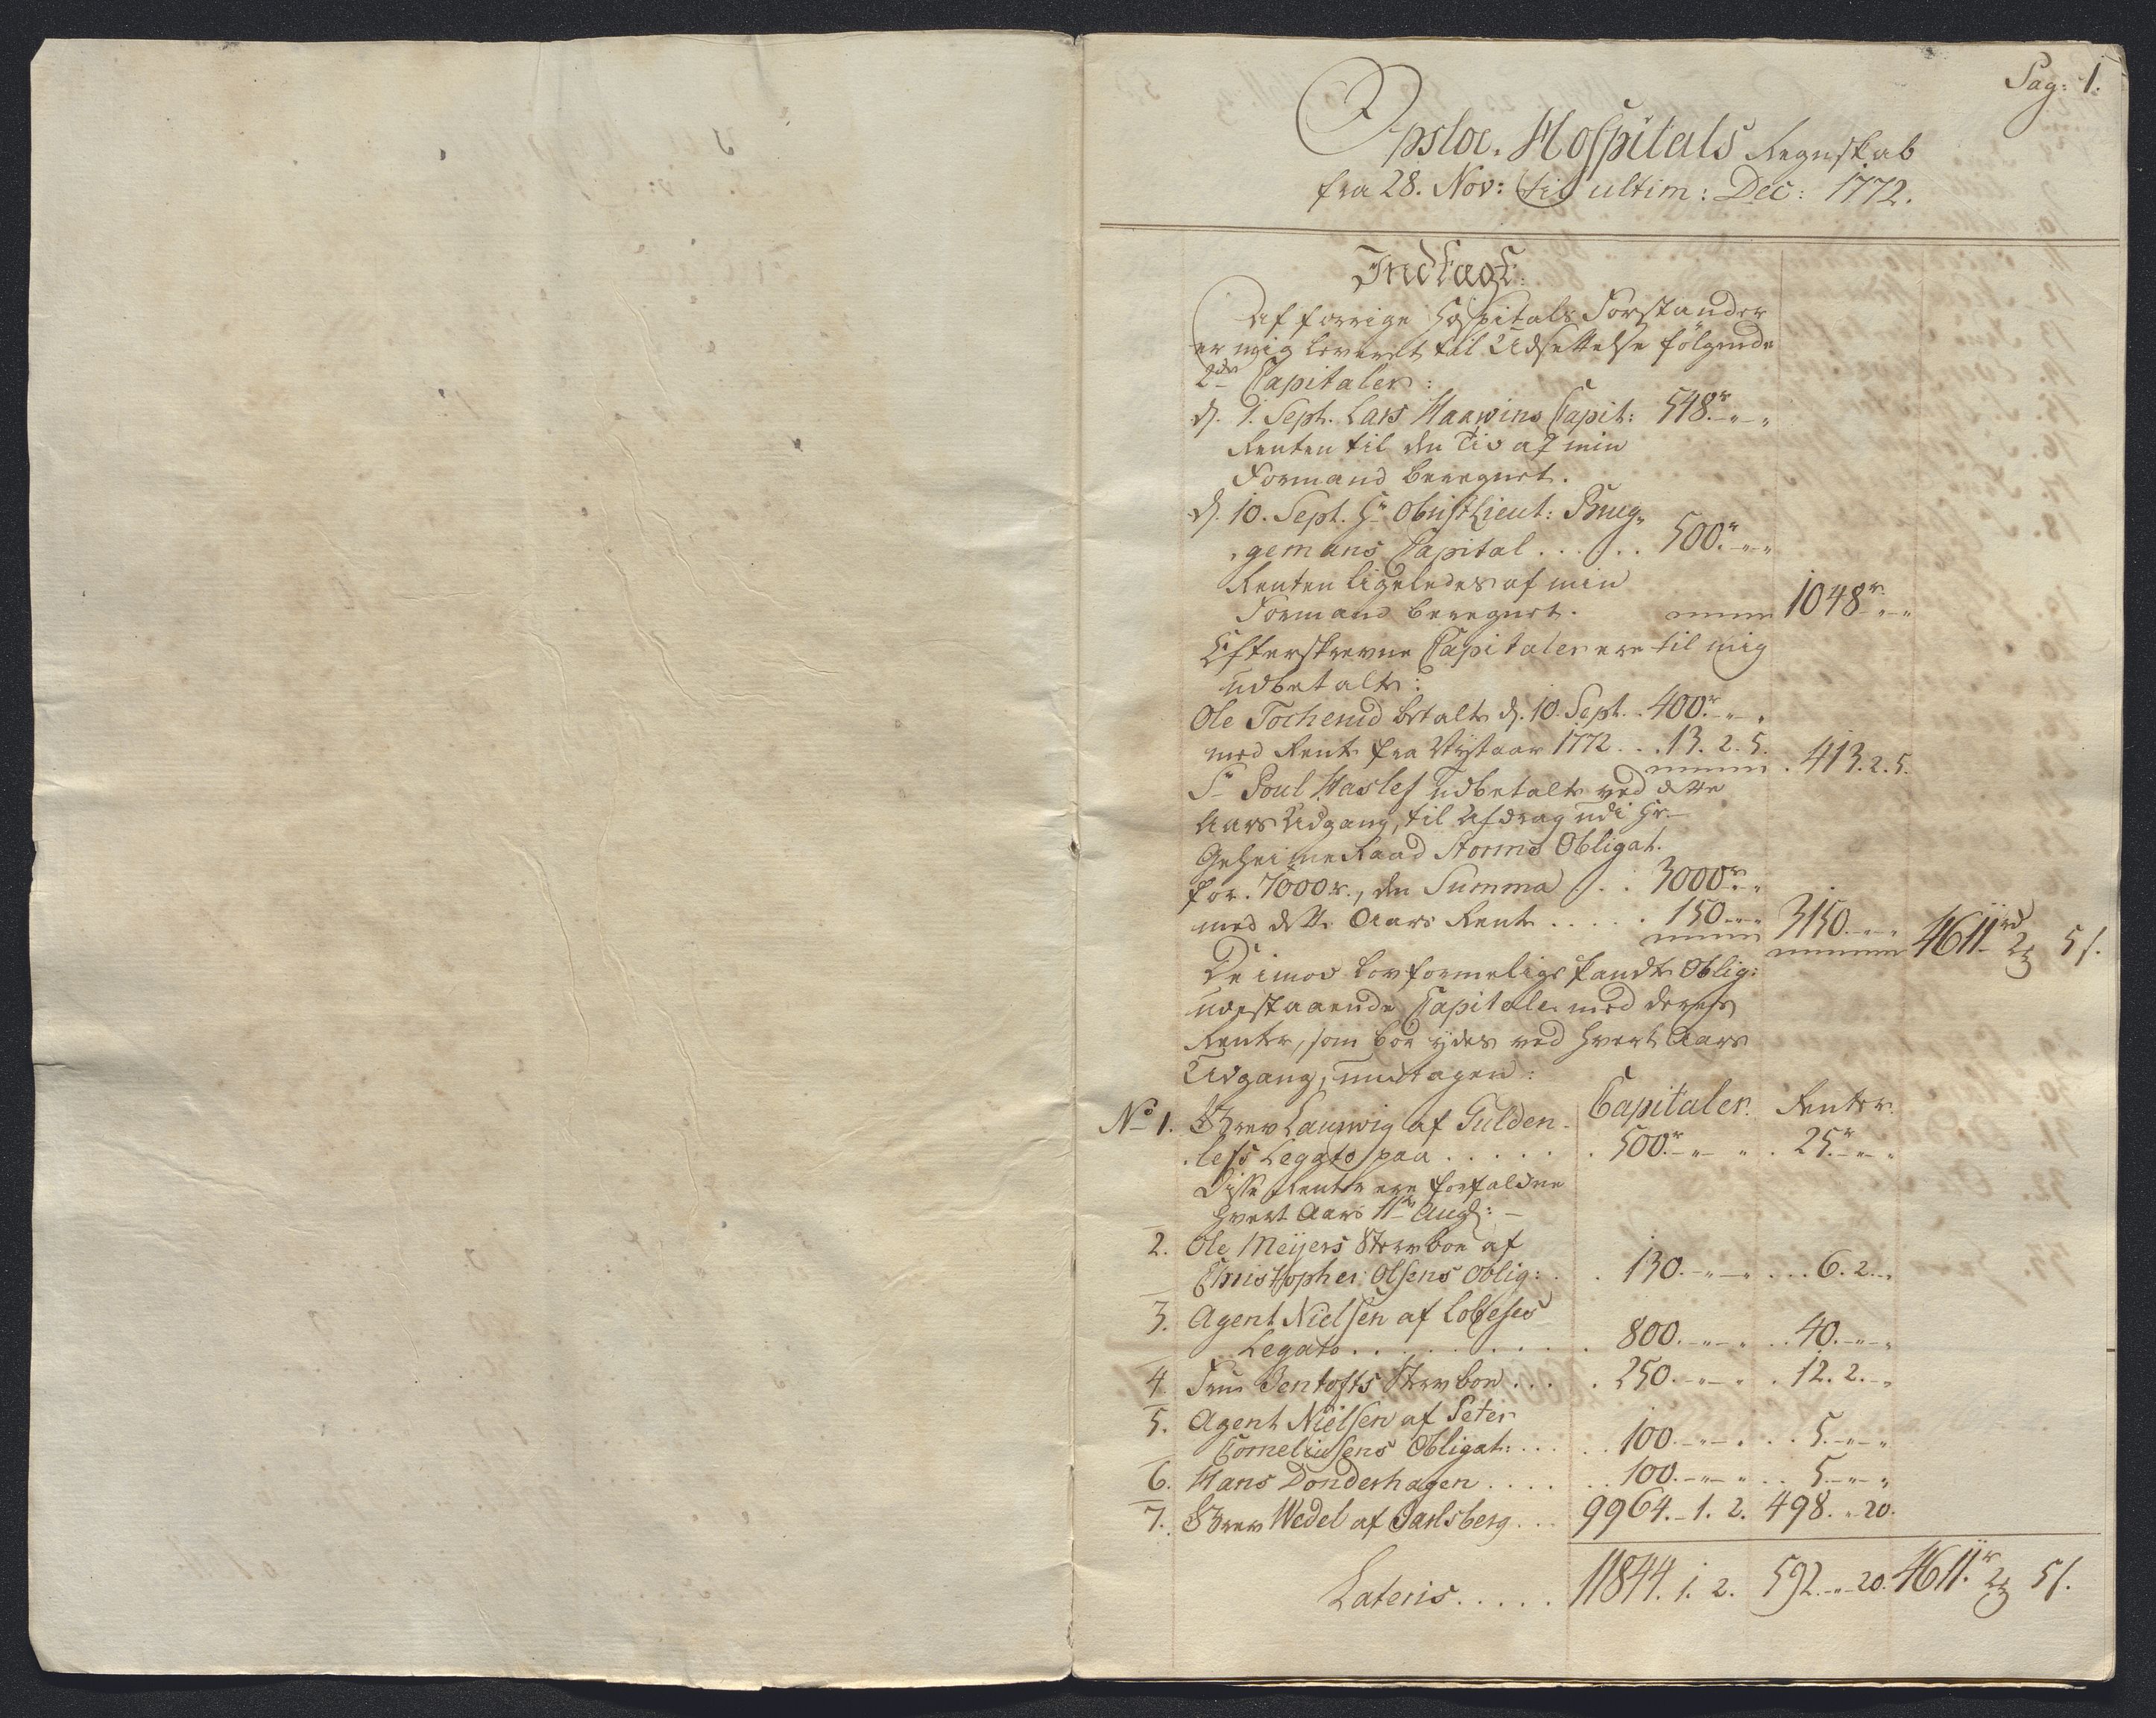 Pag: 1.
Opsloe Hospitals Regnskab
fra 28. Nov: til ultim: Dec: 1772.
Indtægt:
Af forrige Hospitals Forstander
er mig leveret til Udsettelse følgende
2de Capitaler:
d. 1. Sept. Lars Haawins Capit: 548r „ „
Renten til den Tid af min
Formand beregnet.
d. 10. Sept. Hr Obristlieut: Brug„
„gemans Capital . . . . . 500r „ „
Renten ligeledes af min
Formand beregnet. 1048r „ „
Efterskrevne Capitaler ere til mig
udbetalte:
Ole Tocherud betalte d. 10. Sept. . 400r „ „
med Rente fra Nytaar 1772 . . . 13. 2. 5. . 413. 2. 5.
Sr Poul Hasles udbetalte ved dette
Aars Udgang, til Afdrag udi Hr
Geheime Raad Storms Obligat.
for 7000r., den Summa . . . 3000r „ „
med dette Aars Rente . . . . . 150. „ „ 3150. „ „ 4611rd 2 5s.
De imod lovformelige Pandte Oblig:
udestaaende Capitaler med deres
Renter, som bør ydes ved hvert Aars
Udgang, undtagen:
Capitaler. Renter.
No 1. Grev Laurwig af Gulden-
„lefs Legato paa . . . . . . 500r „ „ . 25r „ „
Disse Renter ere forfaldne
hvert Aars 11te Aug:
2. Ole Meyers Sterboe af
Christopher Olsens Oblig: . . 130. „ „ . . . 6. 2. „
3. Agent Nielsen af
Legato . . . . . . . . . 800. „ „ . . 40. „ „
4. Frue Jentofts Sterboe . . . . 250. „ „ . 12. 2. „
5. Agent Nielsen af Peter
Corneliusens Obligat: . . . . . 100. „ „ . . . 5. „ „
6. Hans Donderhagen . . . . . . 100. „ „ . . 5. „ „
7. Grev Wedel af Jarlsberg . . . 9964. 1. 2. 498. „ 20.
Lateris . . . . . 11844. 1. 2. 592. „ 20. 4611r 2 5s.